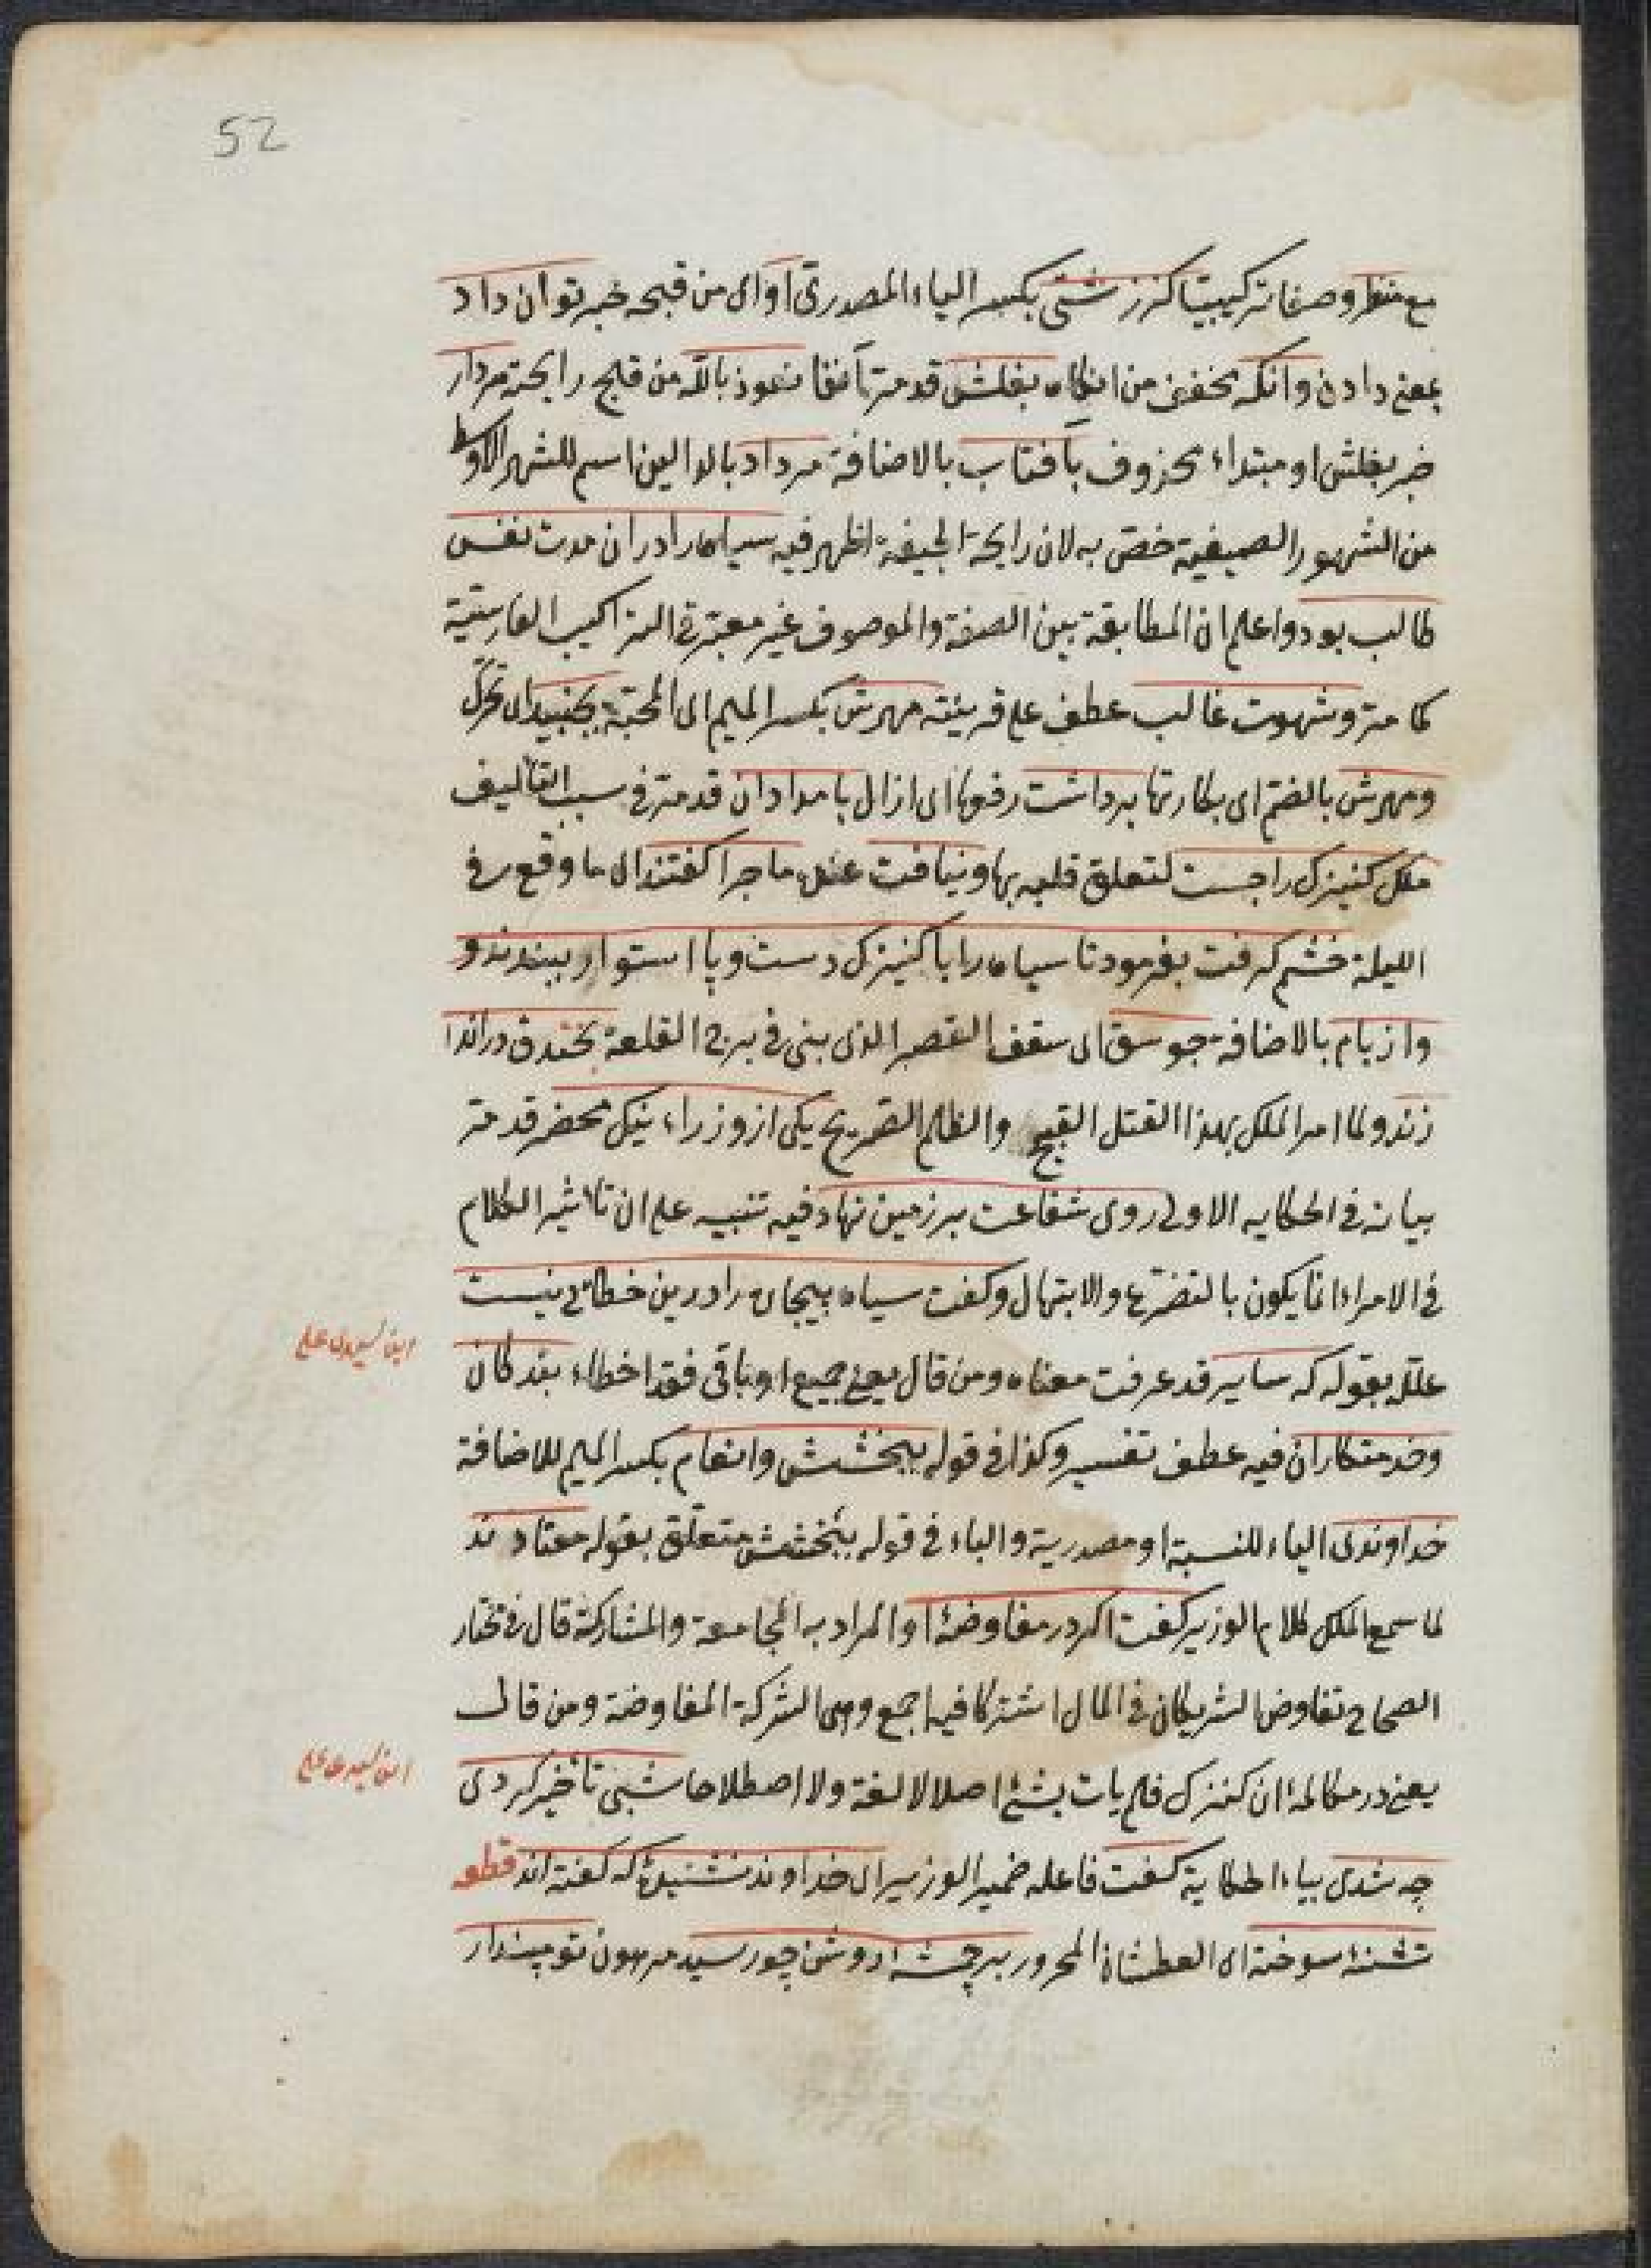 52
مع منظر وصفا تركيبيا كز زشتی بكسر الیاء المصدریة او ای من قبحه خبر توان داد
بمعنی دادن وانكه مخفف من انكاه بغلش قد مر آنفا نعوذ بالله من قبح رایحة مردار
خبر بغلش او مبتداء محذوف بآفتاب بالاضافة مرداد بالدالین اسم للشهر الاوسط
من الشهور الصیفیة خص به لان رایحة الجیفة اظهر فیه سیاه را در ان مدت نفس
طالب بود واعلم ان المطابقة بین الصفة والموصوف غیر معتبر فی التراكیب الفارسیة
كما مر وشهوت غالب عطف علی قرینته مهرش بكسر المیم ای المحبة بجنبید ای تحرك
ومهرش بالضم ای بكارتها برداشت رفعها ای ازال بامدادان قد مر فی سبب التألیف
ملك كنیزك را جست لتعلق قلبه بها ونیافت عنده ماجرا كفتند ای ما وقع فی
اللیلة خشم كرفت بفرمود تا سیاه را با كنیزك دست وپا استوار ببندند و
واز بام بالاضافة جوسق ای سقف القصر الذی بنی فی برج القلعة بخندق در اندا
زند ولما امر الملك بهذا القتل القبیح والظلم الصریح یكی از وزراء نیك محضر قد مر
بیانه فی الحكایه الاولی روی شفاعت بر زمین نهاد فیه تنبیه علی ان تأثیر الكلام
فی الامراء انما یكون بالتضرع والابتهال وكفت سیاه بیچاره را درین خطائی نیست
علله بقوله كه سایر قد عرفت معناه ومن قال یعنی جمیع او باقی فقد اخطاء بندكان
وخدمتكاران فیه عطف تفسیر وكذا فی قوله ببخشش وانعام بكسر المیم للاضافة
خداوندی الیاء للنسبة او مصدریة والباء فی قوله ببخشش متعلق بقوله معتادند
لما سمع الملك كلام الوزیر كفت اكر در مفاوضهٔ او المراد به المجامعة والمشاركة قال فی مختار
الصحاح تفاوض الشریكان فی المال اشتركا فیه اجمع وهی الشركة المفاوضة ومن قال
یعنی در مكالمهٔ ان كنیزك فلم یات بشئ اصلا لا لغة ولا اصطلاحا شبی تأخیر كردی
چه شدی بیاء الحكایة كفت فاعله ضمیر الوزیر ای خداوند نشنیدهٔ كه كفته اند قطعه
تشنهٔ سوخته ای العطشان المحرور بر چشمهٔ روشن چو رسید مرهون تو مپندار
ابن السیدی علی
ابن السیدی علی